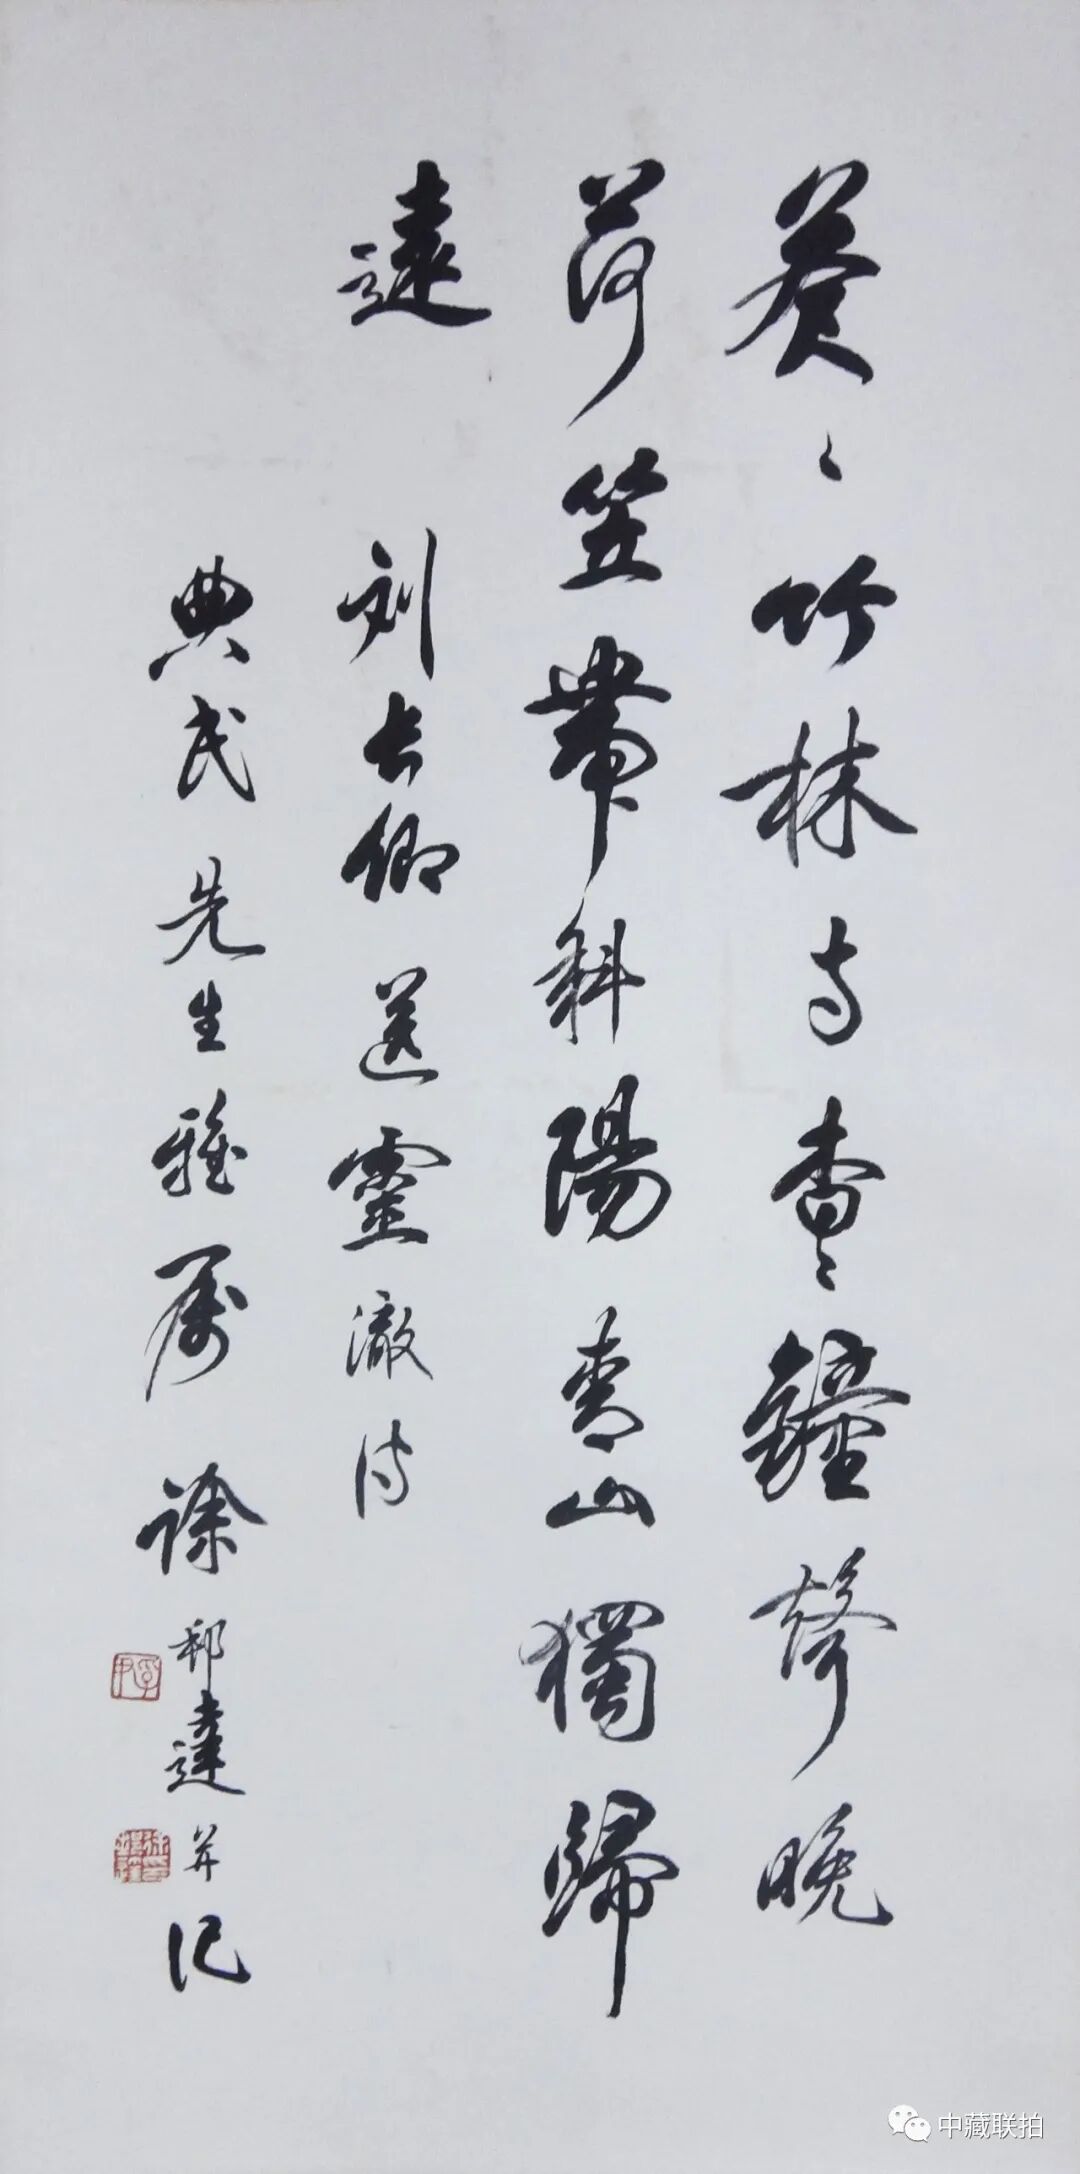 蒼〻竹林寺杳〻鐘聲晚
荷笠帶斜陽青山獨歸
遠
刘長卿送靈澈诗
典民先生雅屬 徐邦達并记
中藏联拍